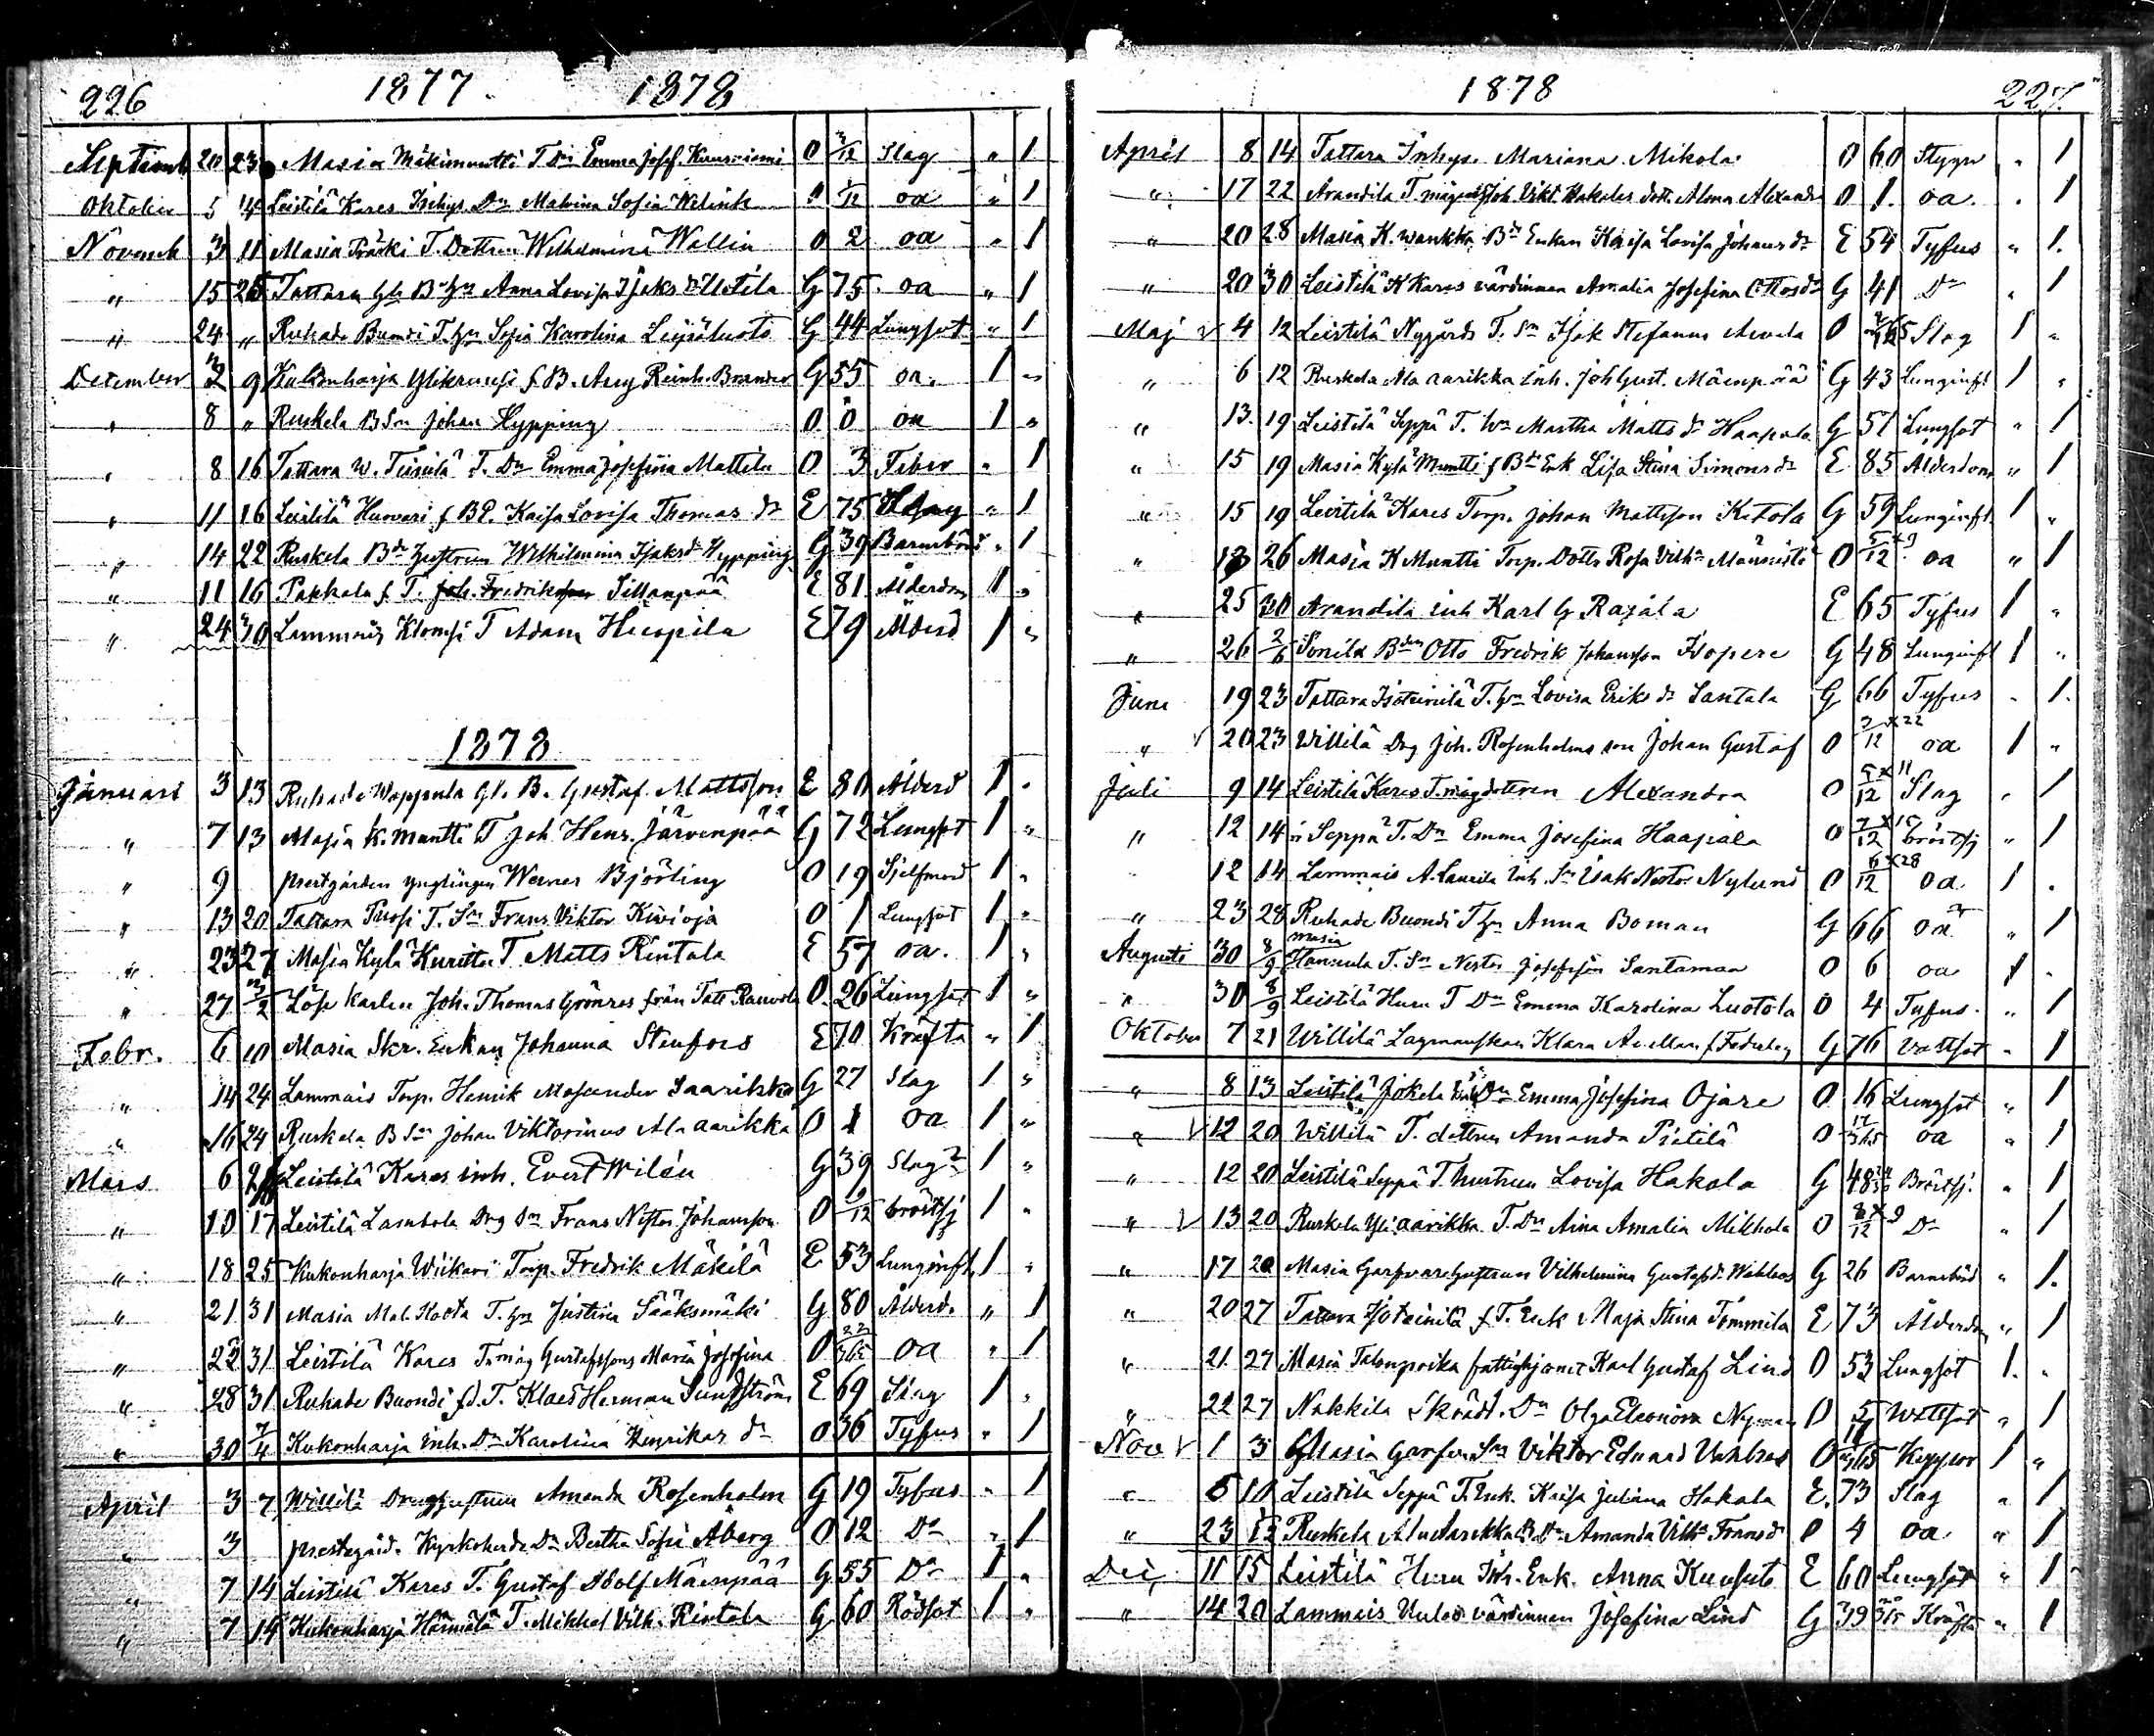 226 1877 1878
Septemb 20 23 Masia Mäkimuntti T Dn Emma Josef. 0 3/12 Slag " 1
Oktober 5 14 Leistilä Kares Inhys Dn Malvina Sofia Welink 0 1/12 oa " 1
Novemb 3 11 Masia T. Dottren Wilhelmina Wallin 0 2 oa " 1
" 15 25 Tattara Gla B Hn Anna Lovisa Isaks d. G 75 oa " 1
" 24 " Ruhade Buondi T. Hn Sofia Karolina G 44 Lungsot " 1
December 2 9 Kukonharja f. B. Aug Reinh. Brander G 55 oa. 1 "
" 8 " Ruskela B Sn Johan Hypping 0 0 oa 1 "
" 8 16 Tattara W. Teinilä T. Dn Emma Josefina Mattila 0 3 Feber " 1
" 11 16 Leistilä f BP. Kaisa Lovisa Thomas dr E 75 " 1
" 14 22 Ruskela Bde Hustrun Wilhelmina Isaksdr Hypping G 39 Barnsbörd " 1
" 11 16 Pakkala f. T. Joh. Fredrikson Sillanpää E 81 Ålderdom 1 "
" 24 30 Lammais Klomsi T Adam Heopila E 79 Ålderd 1 "
1878
Januari 3 13 Ruhade Wappula Gl. B. Gustaf Mattsson E 80 Ålderd 1 "
" 7 13 Masia K. Muntti T Joh Henr. Järvenpää G 72 Lungsot 1 "
" 9 prestgården ynglingen Werner Björling 0 19 Sjelfmord 1 "
" 13 20 Tattara T. Sn Frans Viktor Kivioja 0 1 Lungsot 1 "
" 23 27 Masia Kylä Kuritta T. Matts Rintala E 57 oa. 1 "
" 27 3/2 Löse karlen Joh. Thomas Grönros från Tatt. 0 26 Lungsot 1 "
Febr. 6 10 Masia Skr. Enkan Johanna Stenfors E 70 Kräfta " 1
" 14 24 Lammais Torp. Henrik Masander Saarikko G 27 Slag 1 "
" 16 24 Ruskela B Sn Johan Viktorinus Ala aarikka 0 1 oa 1 "
Mars 6 Leistilä Kares inh. Evert Wilén G 39 Slag 1 "
" 10 17 Leistilä Lambola Drg Sn Frans Nestor Johansson 0 /12 bröstsj 1 "
" 18 25 Kukonharja Wiikari Torp. Fredrik Mäkilä E 53 Lunginfl. 1 "
" 21 31 Masia T. Hn Justina Sääksmäki G 80 Ålderd. " 1
" 22 31 Leistilä Kares T. måg Gustafssons Maria Josefina 0 22/365 oa " 1
" 28 31 Ruhade Buondi fd. T. Klaes Herman Sundström E 69 Slag 1 "
" 30 7/4 Kukonharja inh. Dn Karolina Henriks dr 0 36 Tyfus " 1
April 3 7 Willilä Drughustrun Amanda Rosenholm G 19 Tyfus " 1
" 3 prestgård. Kyrkoherde Dn Bertha Sofia Åberg 0 12 Do " 1
" 7 14 Leistilä Kares T. Gustaf Adolf Mäenpää G 55 Do 1 "
" 7 14 Kukonharja Härmälä T. Mikkel Vilh. Rintala G 60 Rödsot 1 "
1878 227.
April 8 14 Tattara Inhys. Mariana Mikola 0 60 Styng " 1
" 17 22 Arandila T. mågen Joh. Vikt. Hakalas dott. Alma Alexandra 0 1. oa. " 1
" 20 28 Masia K. wankka Bde Enkan Kaisa Lovisa Johans dr E 54 Tyfus " 1.
" 20 30 Leistilä K Kares värdinnan Amalia Josefina Ottosdr G 41 Do " 1
Maj 4 12 Leistilä Nygårds T. Sn Isak Stefanus Arvela 0 /365 Slag 1 "
" 6 12 Ruskela Ala aarikka Inh. Joh Gust. Mäenpää G 43 Lunginfl 1 "
" 13. 19 Leistilä Seppä T. Hn Martha Matts dr Haapala G 57 Lungsot " 1
" 15 19 Masia Kylä Muntti f Bde Enk Lisa Stina Simons dr E 85 Ålderdom " 1
" 15 19 Leistilä Kares Torp. Johan Mattsson Ketola G 59 Lunginfl. 1 "
" 19 26 Masia K Muntti Torp. Dottr Rosa Vilh. 0 5x9/12 oa " 1
" 25 30 Arandila inh Karl G Rajala E 65 Tyfus 1 "
" 26 2/6 Sonila Bden Otto Fredrik Johansson Isopere G 48 Lunginfl 1 "
Juni 19 23 Tattara Isoteinilä T. Hn Lovisa Eriks dr Santala G 66 Tyfus " 1.
" 20 23 Willilä Drg Joh. Rosenholms son Johan Gustaf 0 2x22/12 oa 1 "
Juli 9 14 Leistilä Kares T. mågdottren Alexandra 0 5x11/12 Slag " 1
" 12 14 " Seppä T. Dn Emma Josefina Haapala 0 7x15/12 bröstsj " 1
" 12 14 Lammais A. Laurila Inh. Sn Isak Nestor Nylund 0 6x28/12 oa. 1 "
" 23 28 Ruhade Buondi T Hn Anna Boman G 66 oa " 1
Augusti 30 8/9 Masia Hannula T. Sn Nestor Josefsson Santamaa 0 6 oa 1 "
" 30 8/9 Leistilä Huru T Dn Emma Karolina Luotola 0 4 Tyfus. " 1
Oktober 7 21 Willilä Lagmanskan Klara f. G 76 Vattsot " 1
" 8 13 Leistilä Jokela Dn Emma Josefina Ojare 0 16 Lungsot " 1
" 12 20 Willilä T. dottren Amanda Pietilä 0 17/365 oa " 1
" 12 20 Leistilä Seppä T. hustrun Lovisa Hakala G 48 Bröstsj. " 1
" 13 20 Ruskela Yli aarikka T. Dn Aina Amalia Mikkola 0 8x9/12 Do " 1
" 17 20 Masia Garfvarehustrun Vilhelmina Gustafsdr. G 26 Barnsbörd " 1.
" 20 27 Tattara Isoteinilä f T. Enk Maja Stina Tommila E 73 Ålderdom " 1
" 21 27 Masia Talonpoika fattighjonet Karl Gustaf Lind 0 53 Lungsot 1. "
" 22 27 Nakkila Skrädd. Dn Olga Eleonora Nyman 0 5 Wattsot " 1
Nov 1 3 Masia Garfvar Sn Viktor Eduard 0 /365 1 "
" 5 10 Leistilä Seppä T. Enk. Kaisa Juliana Hakala E. 73 Slag " 1
" 23 Ruskela Ala aarikka B Dn Amanda Vilh. Fransdr 0 4 oa " 1
Dec, 11 15 Leistilä Huru Inh. Enk. Anna E 60 Lungsot " 1
" 14 20 Lammais värdinnan Josefina Lind G 39 Kräfta " 1